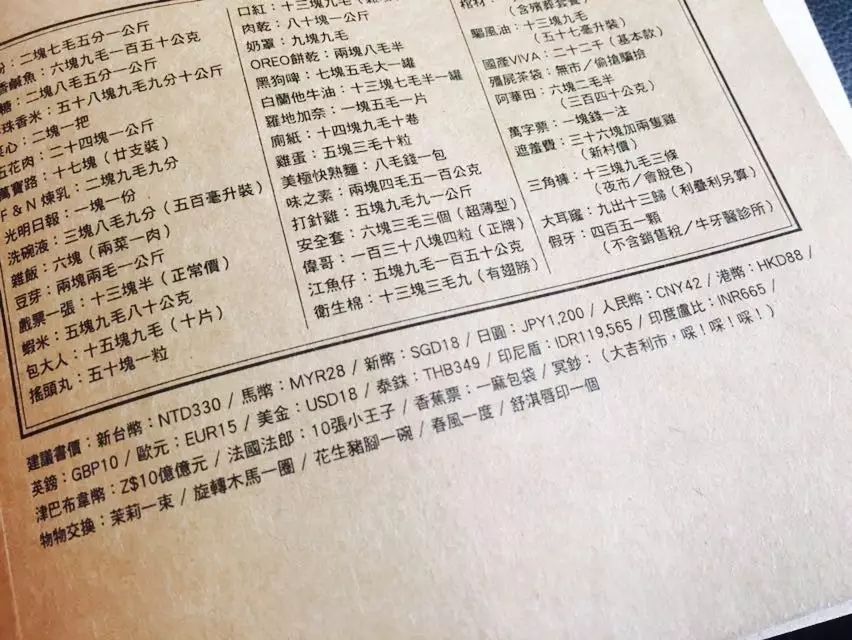 粉：二塊七毛五分一公斤
香鹹魚：六塊九毛一百五十公克
糖：二塊八毛五分一公斤
珠香米：五十八塊九毛九分十公斤
菜心：二塊一把
五花肉：二十四塊一公斤
萬寶路：十七塊（廿支裝）
F & N 煉乳：二塊九毛九分
光明日報：一塊一份
洗碗液：三塊八毛九分（五百毫升裝）
雜飯：六塊（兩菜一肉）
豆芽：兩塊兩毛一公斤
戲票一張：十三塊半（正常價）
蝦米：五塊九毛八十公克
包大人：十五塊九毛（十片）
搖頭丸：五十塊一粒
口紅：十三塊九毛
肉乾：八十塊一公斤
奶罩：九塊九毛
OREO餅乾：兩塊八毛半
黑狗啤：七塊五毛大一罐
白蘭他牛油：十三塊七毛半一罐
羅地加奈：一塊五毛一片
廁紙：十四塊九毛十巷
雞蛋：五塊三毛十粒
美極快熟麵：八毛錢一包
味之素：兩塊四毛五一百公克
打針雞：五塊九毛九一公斤
安全套：六塊三毛三個（超薄型）
偉哥：一百三十八塊四粒（正牌）
江魚仔：五塊九毛一百五十公克
衛生棉：十三塊三毛九（有翅膀）
棺材：
（含殯葬套餐）
驅風油：十三塊九毛
（五十七毫升裝）
國產VIVA：二十二千（基本款）
殭屍茶袋：無市／偷搶騙撿
阿華田：六塊二毛半
（三百四十公克）
萬字票：一塊錢一注
遮羞費：三十六塊加兩隻雞
（新村價）
三角褲：十三塊九毛三條
（夜市／會脫色）
大耳窿：九出十三歸（利疊利另算）
假牙：四百五一顆
（不含銷售稅／牛牙醫診所）
建議書價：新台幣：NTD330 / 馬幣：MYR28 / 新幣：SGD18 / 日圓：JPY1,200 / 人民幣：CNY42 / 港幣：HKD88 /
英鎊：GBP10 / 歐元：EUR15 / 美金：USD18 / 泰銖：THB349 / 印尼盾：IDR119,565 / 印度盧比：INR665 /
津巴布韋幣：Z$10億億元 / 法國法郎：10張小王子 / 香蕉票：一麻包袋 / 冥鈔：（大吉利市，啋！啋！啋！）
物物交換：茉莉一束 / 旋轉木馬一圈 / 花生豬腳一碗 / 春風一度 / 舒淇唇印一個